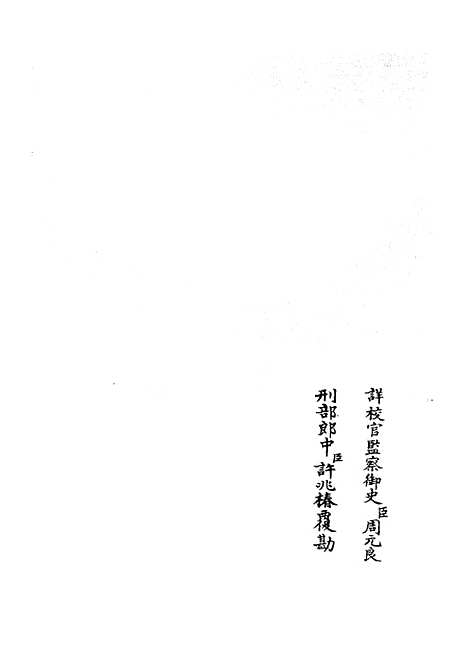 詳校官監察御史臣周元良
刑部郎中臣許兆椿覆勘